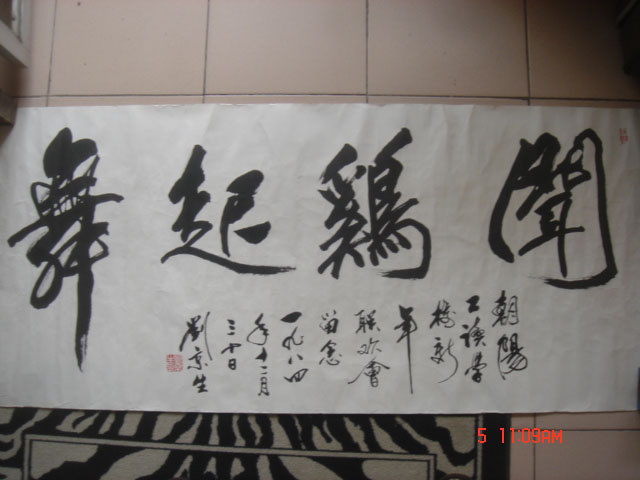 聞鷄起舞
朝陽
工讀學
校新
年
聯欢會
留念
一九八四
年十二月
三十日
劉京生
5 11:09AM